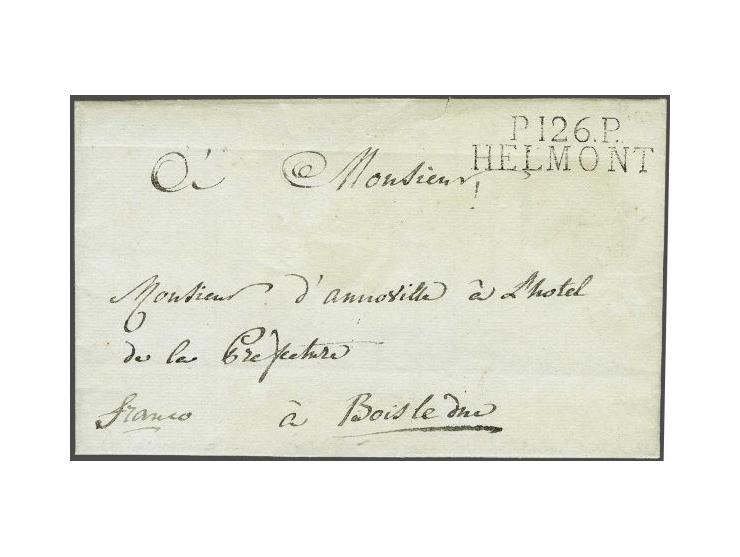 P126.P.
HELMONT
à Monsieur,
Monsieur d'annoville à L'hotel
de la Préfecture
franco à Boisleduc